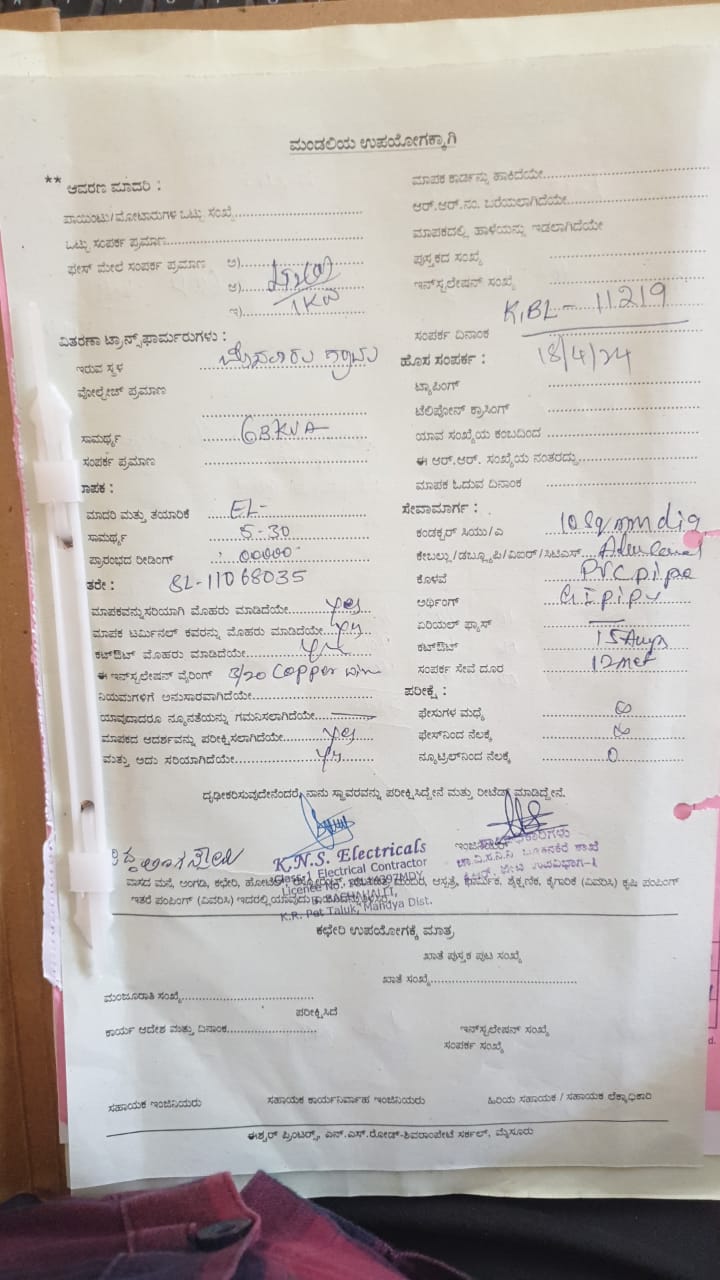 ಮಂಡಲಿಯ ಉಪಯೋಗಕ್ಕಾಗಿ
** ಆವರಣ ಮಾದರಿ :
ಪಾಯಿಂಟು/ಮೋಟಾರುಗಳ ಒಟ್ಟು ಸಂಖ್ಯೆ
ಒಟ್ಟು ಸಂಪರ್ಕ ಪ್ರಮಾಣ
ಫೇಸ್ ಮೇಲೆ ಸಂಪರ್ಕ ಪ್ರಮಾಣ ಅ)
ಆ)
ಇ) 1KW
ವಿತರಣಾ ಟ್ರಾನ್ಸ್‌ಫಾರ್ಮರುಗಳು :
ಇರುವ ಸ್ಥಳ
ವೋಲ್ಟೇಜ್ ಪ್ರಮಾಣ
ಸಾಮರ್ಥ್ಯ 63KVA
ಸಂಪರ್ಕ ಪ್ರಮಾಣ
ಮಾಪಕ :
ಮಾದರಿ ಮತ್ತು ತಯಾರಿಕೆ EL-
ಸಾಮರ್ಥ್ಯ 5-30
ಪ್ರಾರಂಭದ ರೀಡಿಂಗ್ 00000
ತರೇ : SL-11068035
ಮಾಪಕವನ್ನು ಸರಿಯಾಗಿ ಮೊಹರು ಮಾಡಿದೆಯೇ yes
ಮಾಪಕ ಟರ್ಮಿನಲ್ ಕವರನ್ನು ಮೊಹರು ಮಾಡಿದೆಯೇ yes
ಕಟ್‌ಔಟ್ ಮೊಹರು ಮಾಡಿದೆಯೇ yes
ಈ ಇನ್‌ಸ್ಟಲೇಷನ್ ವೈರಿಂಗ್ 3/20 Copper wire
ನಿಯಮಗಳಿಗೆ ಅನುಸಾರವಾಗಿದೆಯೇ
ಯಾವುದಾದರೂ ನ್ಯೂನತೆಯನ್ನು ಗಮನಿಸಲಾಗಿದೆಯೇ
ಮಾಪಕದ ಆದರ್ಶವನ್ನು ಪರೀಕ್ಷಿಸಲಾಗಿದೆಯೇ yes
ಮತ್ತು ಅದು ಸರಿಯಾಗಿದೆಯೇ yes
ಮಾಪಕ ಕಾರ್ಡನ್ನು ಹಾಕಿದೆಯೇ
ಆರ್.ಆರ್.ನಂ. ಬರೆಯಲಾಗಿದೆಯೇ
ಮಾಪಕದಲ್ಲಿ ಹಾಳೆಯನ್ನು ಇಡಲಾಗಿದೆಯೇ
ಪುಸ್ತಕದ ಸಂಖ್ಯೆ
ಇನ್‌ಸ್ಟಲೇಷನ್ ಸಂಖ್ಯೆ
KIBL - 11219
ಸಂಪರ್ಕ ದಿನಾಂಕ
ಹೊಸ ಸಂಪರ್ಕ : 18/4/24
ಟ್ಯಾಪಿಂಗ್
ಟೆಲಿಫೋನ್ ಕ್ರಾಸಿಂಗ್
ಯಾವ ಸಂಖ್ಯೆಯ ಕಂಬದಿಂದ
ಈ ಆರ್.ಆರ್. ಸಂಖ್ಯೆಯ ನಂತರದ್ದು
ಮಾಪಕ ಓದುವ ದಿನಾಂಕ
ಸೇವಾಮಾರ್ಗ :
ಕಂಡಕ್ಟರ್ ಸಿಯು/ಎ 10 Sq mm dia
ಕೇಬಲ್ಲು/ಡಬ್ಲ್ಯೂಪಿ/ಎಐಆರ್/ಸಿಟಿಎಸ್
ಕೊಳವೆ PVC pipe
ಅರ್ಥಿಂಗ್ GI pipe
ಏರಿಯಲ್ ಫ್ಯೂಸ್
ಕಟ್‌ಔಟ್ 15 Amps
ಸಂಪರ್ಕ ಸೇವೆ ದೂರ 12 met
ಪರೀಕ್ಷೆ :
ಫೇಸುಗಳ ಮಧ್ಯೆ ∞
ಫೇಸ್‌ನಿಂದ ನೆಲಕ್ಕೆ ∞
ನ್ಯೂಟ್ರಲ್‌ನಿಂದ ನೆಲಕ್ಕೆ 0
ದೃಢೀಕರಿಸುವುದೇನೆಂದರೆ, ನಾನು ಸ್ಥಾವರವನ್ನು ಪರೀಕ್ಷಿಸಿದ್ದೇನೆ ಮತ್ತು ರೀಟೆಡ್ ಮಾಡಿದ್ದೇನೆ.
K.N.S. Electricals
Class-1 Electrical Contractor
BACHAHALLI,
K.R. Pet Taluk, Mandya Dist.
ಇಂಜಿನಿಯರ್
ವಾಸದ ಮನೆ, ಅಂಗಡಿ, ಕಛೇರಿ, ಹೋಟೆಲ್, ಮಂದಿರ, ಆಸ್ಪತ್ರೆ, ಧಾರ್ಮಿಕ, ಶೈಕ್ಷಣಿಕ, ಕೈಗಾರಿಕೆ (ವಿವರಿಸಿ) ಕೃಷಿ ಪಂಪಿಂಗ್
ಇತರೆ ಪಂಪಿಂಗ್ (ವಿವರಿಸಿ)
ಕಛೇರಿ ಉಪಯೋಗಕ್ಕೆ ಮಾತ್ರ
ಖಾತೆ ಪುಸ್ತಕ ಪುಟ ಸಂಖ್ಯೆ
ಖಾತೆ ಸಂಖ್ಯೆ
ಮಂಜೂರಾತಿ ಸಂಖ್ಯೆ
ಪರೀಕ್ಷಿಸಿದೆ
ಕಾರ್ಯ ಆದೇಶ ಮತ್ತು ದಿನಾಂಕ
ಇನ್‌ಸ್ಟಲೇಷನ್ ಸಂಖ್ಯೆ
ಸಂಪರ್ಕ ಸಂಖ್ಯೆ
ಸಹಾಯಕ ಇಂಜಿನಿಯರು ಸಹಾಯಕ ಕಾರ್ಯನಿರ್ವಾಹ ಇಂಜಿನಿಯರು ಹಿರಿಯ ಸಹಾಯಕ / ಸಹಾಯಕ ಲೆಕ್ಕಾಧಿಕಾರಿ
ಈಶ್ವರ್ ಪ್ರಿಂಟರ್ಸ್, ಎನ್.ಎಸ್.ರೋಡ್-ಶಿವರಾಂಪೇಟೆ ಸರ್ಕಲ್, ಮೈಸೂರು